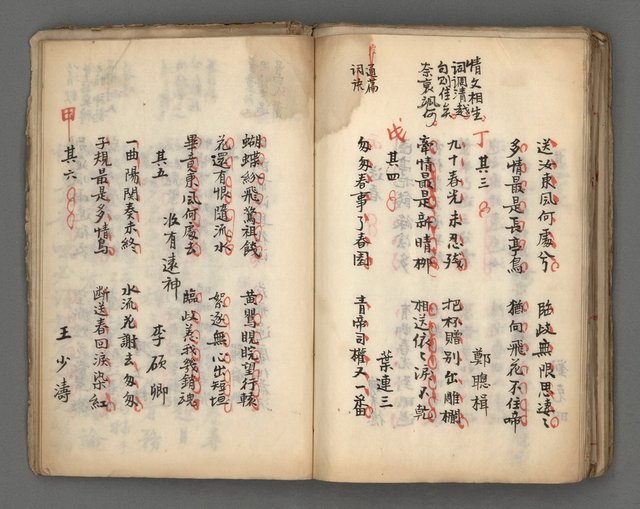 送汝東風何處兮　臨歧無限思遠々
多情最是長亭鳥　猶向飛花不住啼
丁　其三　鄭聰楫
情文相生
詞調清越
句別佳矣
奈裏諷何
九十春光未忍殘　把杯贈別出雕欄
牽情最是新晴柳　相送依々淚不乾
戊　其四　葉連三
通篇
詞法
匆匆春事了春園　青帝司權又一番
蝴蝶紛飛驚祖餞　黃鸎睍睆望行轅
花還有恨隨流水　絮逐無心出短垣
畢竟東風何處去　臨歧惹我幾銷魂
其五　李碩卿
收有遠神
一曲陽関奏未終　水流花謝去匆匆
子規最是多情鳥　断送春回淚染紅
甲　其六　王少濤